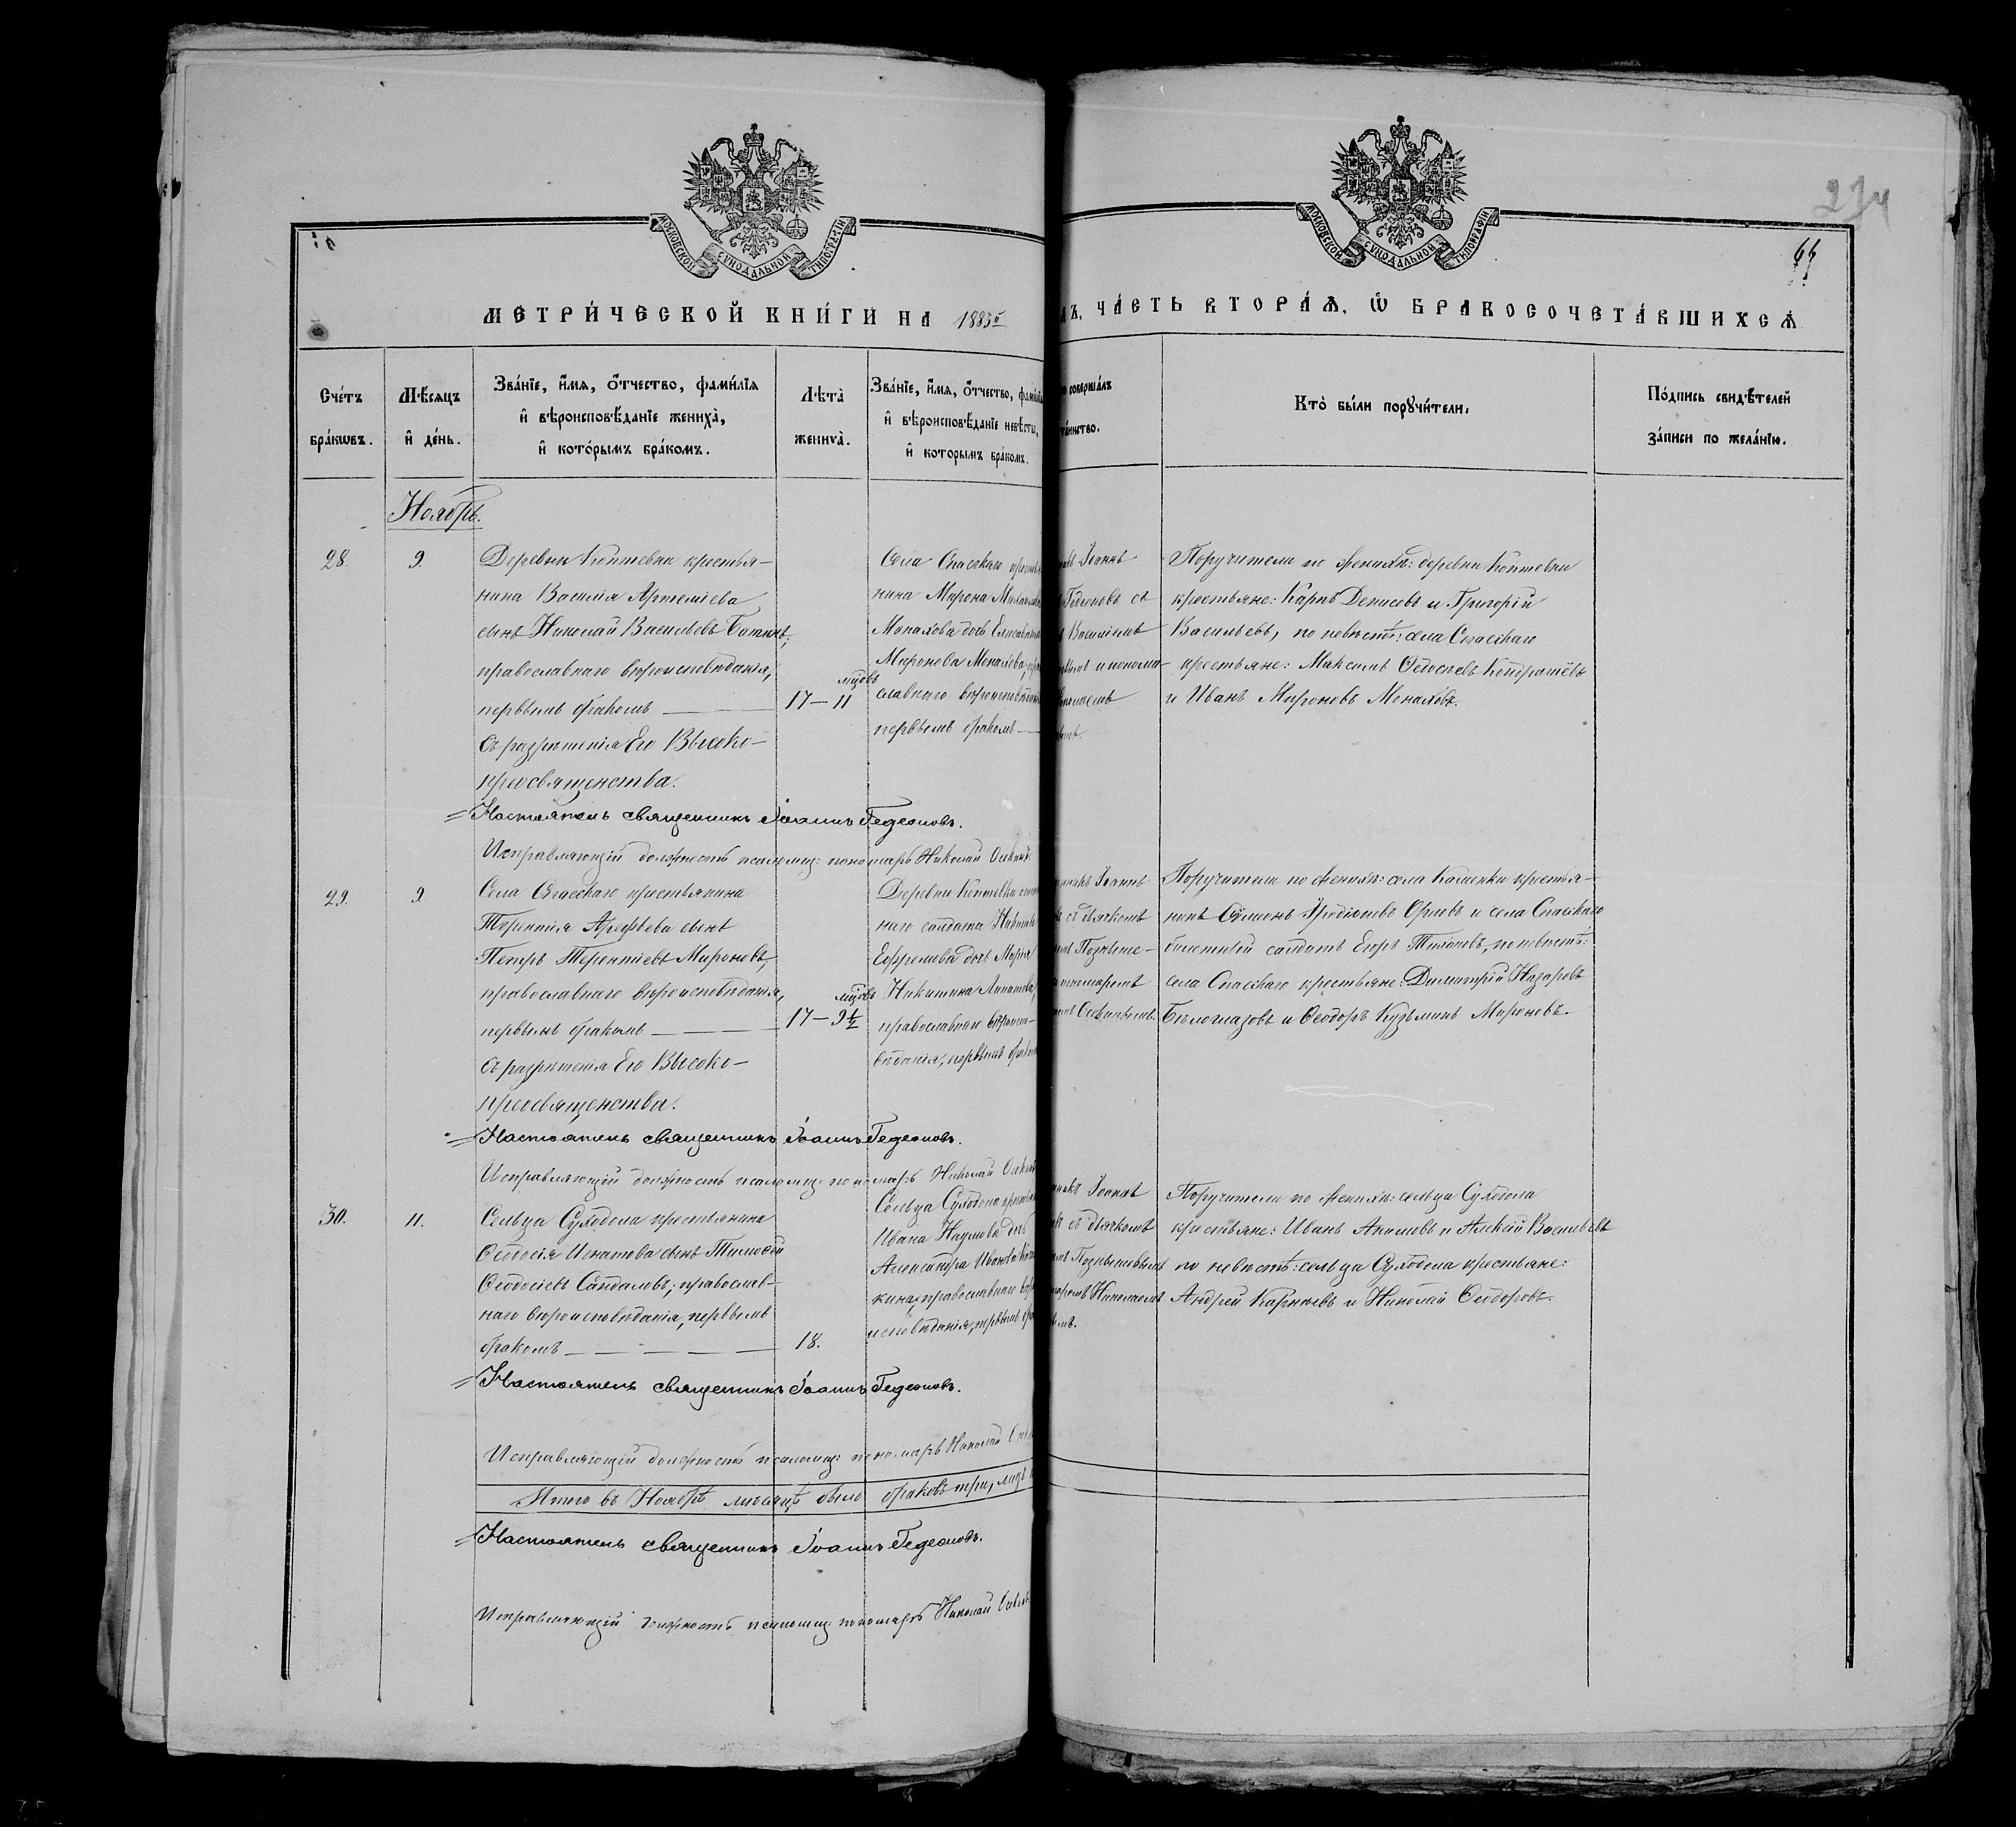 234
65
МОСКОВСКОЙ СѴНОДАЛЬНОЙ ТИПОГРАФІИ
МОСКОВСКОЙ СѴНОДАЛЬНОЙ ТИПОГРАФІИ
МЕТРИ́ЧЕСКОЙ КНИ́ГИ НА 1883й
ЧА́СТЬ ВТОРА́Ѧ, Ѡ҆ БРАКОСОЧЕТА́ВШИХСѦ
Сче́тъ бра́кѡвъ.
Мѣ́сяцъ и҆ де́нь.
Зва́нїе, и҆́мѧ, ѻ҆́тчество, фами́лїѧ
и҆ вѣроисповѣ́данїе жениха̀,
и҆ кото́рымъ бра́комъ.
Лѣ́та̀ жениха̀.
Зва́нїе, и҆́мѧ, ѻ҆́тчество, фами́лїѧ
и҆ вѣроисповѣ́данїе невѣ́сты,
и҆ кото́рымъ бра́комъ.
соверша́лъ
та́инство.
Кто̀ бы́ли порꙋчи́тели.
По́дпись свидѣ́телей
за́писи по жела́нїю.
Ноябрь.
28. 9.
Деревни Коптевки крестья-
нина Василія Артеміева
сынъ Николай Васильевъ Батинъ,
православнаго вѣроисповѣданія,
первымъ бракомъ
Съ разрѣшенія Его Высоко-
преосвященства.
мцовъ
17 — 11
Села Спасскаго
нина Мирона
Монахова дочь
Миронова Монахова,
славнаго
первымъ бракомъ
Іоаннъ
Гедеоновъ съ
Василіемъ
и понома-
Николаемъ
Поручители по женихѣ: деревни Коптевки
крестьяне: Карпъ Денисовъ и Григорій
Васильевъ, по невѣстѣ: села Спасскаго
крестьяне: Максимъ Ѳедосѣевъ Кондрашёвъ
и Иванъ Мироновъ Монаховъ.
Настоятель священникъ Іоаннъ Гедеоновъ.
Исправляющій должность псаломщ: пономарь Николай
29. 9
Села Спасскаго крестьянина
Терентія Арефьева сынъ
Петръ Терентіевъ Мироновъ,
православнаго вѣроисповѣданія,
первымъ бракомъ
Съ разрѣшенія Его Высоко-
преосвященства.
мцовъ
17 — 9½
Деревни Коптевки
наго солдата
Ефремова дочь Марія
Никитина
православнаго
вѣданія, первымъ
Іоаннъ
съ дьячкомъ
Позныше-
пономаремъ
Поручители по женихѣ: села Каменки крестья-
нинъ Симеонъ Иродіоновъ Орловъ и села Спасскаго
билетный солдатъ Егоръ, по невѣстѣ:
села Спасскаго крестьяне: Димитрій Назаровъ
Бѣлоглазовъ и Ѳеодоръ Кузьминъ Мироновъ.
Настоятель священникъ Іоаннъ Гедеоновъ.
Исправляющій должность псаломщ: пономарь Николай
30. 11.
Сельца Суходола крестьянина
Ѳедосія Игнатова сынъ Тимоѳей
Ѳеодосіевъ, православ-
наго вѣроисповѣданія, первымъ
бракомъ
18.
Сельца Суходола
Ивана Наумова дочь
Александра Иванова
кина, православнаго
исповѣданія, первымъ
Іоаннъ
съ дьячкомъ
Познышевымъ
Николаемъ
Поручители по женихѣ: сельца Суходола
крестьяне: Иванъ Акимовъ и Алексій Васильевъ
по невѣстѣ: сельца Суходола крестьяне:
Андрей Карнѣевъ и Николай Ѳеодоровъ.
Настоятель священникъ Іоаннъ Гедеоновъ.
Исправляющій должность псаломщ: пономарь Николай
Итого въ Ноябрѣ мѣсяцѣ было браковъ три,
Настоятель священникъ Іоаннъ Гедеоновъ.
Исправляющій должность псаломщ: пономарь Николай